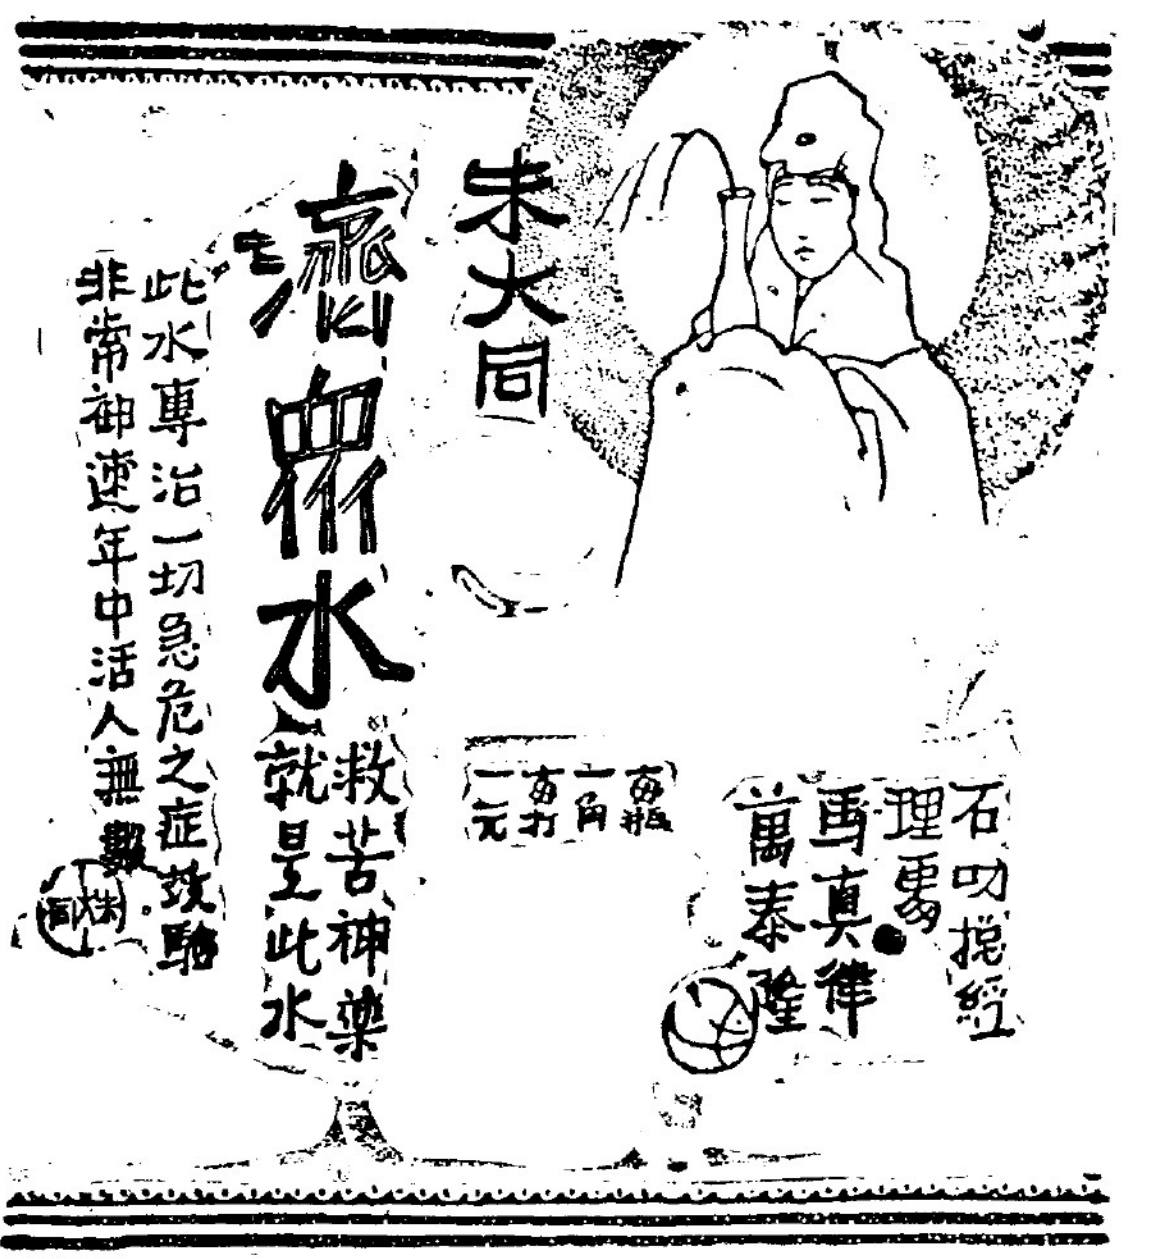 朱大同
濟眾水
救苦神藥
就是此水
此水專治一切急危之症效驗
非常神速年中活人無數
每瓶
一角
每打
一元
石叻總經
理處
馬真律
萬泰隆